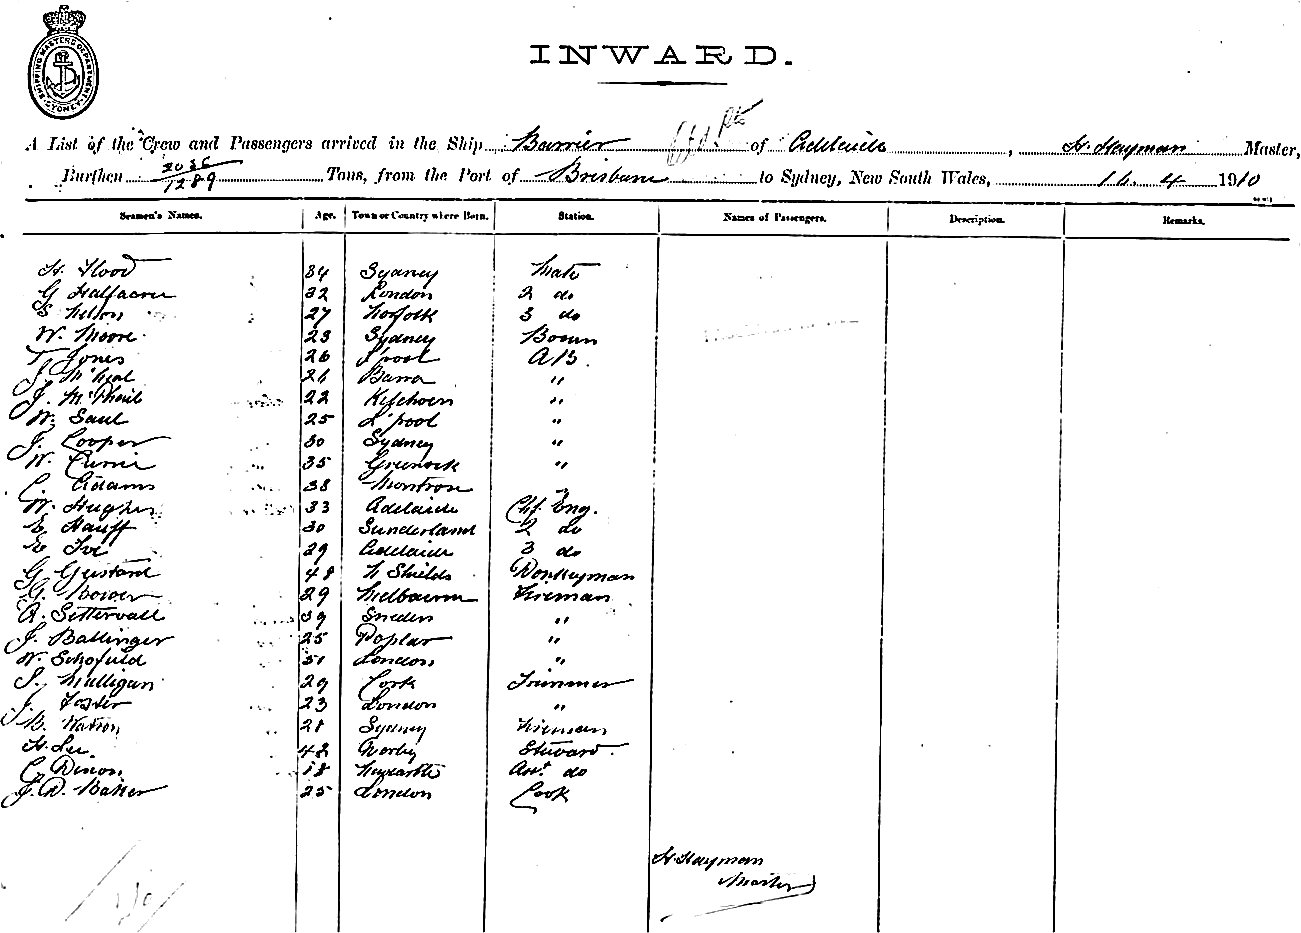 SHIPPING MASTERS DEPARTMENT SYDNEY
INWARD.
A List of the Crew and Passengers arrived in the Ship Barrier of Adelaide, H. Hayman Master,
Burthen 2036/1289 Tons, from the Port of Brisbane to Sydney, New South Wales, 16. 4 1910
Seamen's Names. Age. Town or Country where Born. Station. Names of Passengers. Description. Remarks.
H. Flood 34 Sydney Mate
G Halfacre 32 London 2 do
S Nelson 27 Norfolk 3 do
W. Moore 23 Sydney Bosun
T Jones 26 L'pool AB.
J. McNeal 26 Barra "
J. McPhail 22 Kilchoen "
W. Saul 25 L'pool "
J. Cooper 30 Sydney "
W. Currie 35 Greenock "
C. Adams 38 Montrose "
W. Hughes 33 Adelaide Chf. Eng.
E Hauff 30 Sunderland 2 do
E Ive 29 Adelaide 3 do
G Gustard 48 N Shields Donkeyman
G. Bower 29 Melbourne Fireman
A. Settervall 39 Sweden "
J. Ballinger 25 Poplar "
W. Schofield 51 London "
J. Mulligan 29 Cork Trimmer
J. Foster 23 London "
B. Watson 28 Sydney Fireman
H. Lee 42 Derby Steward
C. Dixon 18 Newcastle Asst do
J. D. Baker 25 London Cook
H Hayman
Master